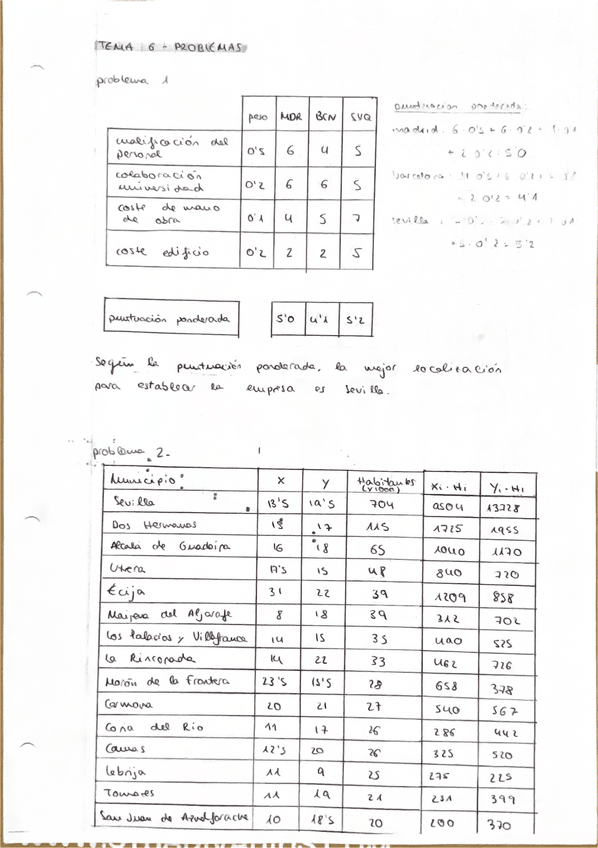 TEMA 6 - PROBLEMAS
problema 1
peso MDR BCN SVQ
cualificación del personal 0'5 6 4 5
colaboración universidad 0'2 6 6 5
coste de mano de obra 0'1 4 5 7
coste edificio 0'2 2 2 5
puntuación ponderada:
madrid:
barcelona:
sevilla
puntuación ponderada 5'0 4'1 5'2
Según la puntuación ponderada, la mejor localización
para establecer la empresa es Sevilla.
problema 2-
Municipio X Y Habitantes (x1000) Xi·Hi Yi·Hi
Sevilla 13'5 19'5 704 9504 13728
Dos Hermanas 15 17 115 1725 1955
Alcala de Guadaira 16 18 65 1040 1170
Utrera 17'5 15 48 840 720
Écija 31 22 39 1209 858
Mairena del Aljarafe 8 18 39 312 702
Los Palacios y Villafranca 14 15 35 490 525
La Rinconada 14 22 33 462 726
Morón de la Frontera 23'5 13'5 28 658 378
Carmona 20 21 27 540 567
Coria del Río 11 17 26 286 442
Camas 12'5 20 26 325 520
Lebrija 11 9 25 275 225
Tomares 11 19 21 231 399
San Juan de Aznalfarache 10 18'5 20 200 370